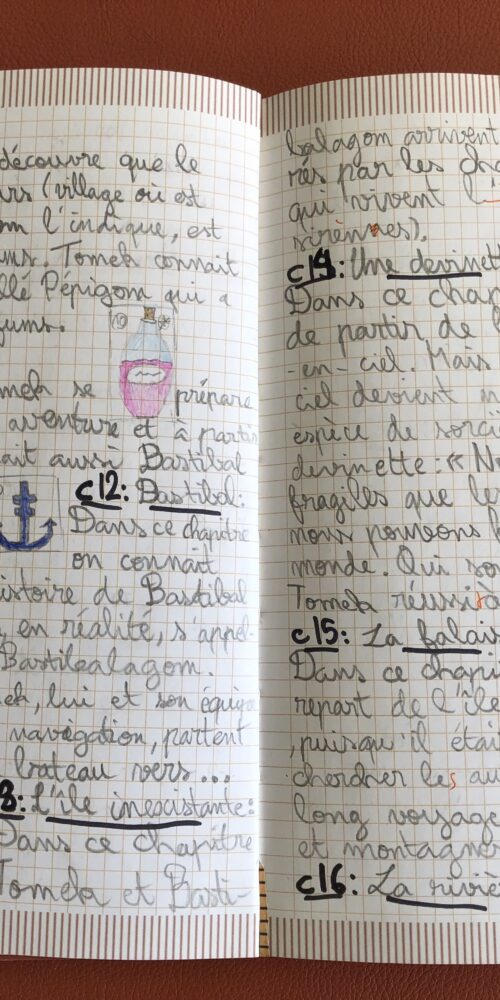 découvre que le
urs (village où est
om l'indique, est
ums. Tomek connait
llé Pépigom qui a
fums.
mek se prépare
aventure et à partir
ait aussi Bastibal
c12: Bastibal:
Dans ce chapitre
on connait
istoire de Bastibal
, en réalité, s'appel-
Bastibalagom.
ek, lui et son équipa
navigation, partent
bateau vers...
3: L'île inexistante:
Dans ce chapitre
Tomek et Basti-
balagom arrivent
rés par les cha
qui vivent l
sirènnes).
c14: Une devinett
Dans ce chap
de partir de l
-en-ciel. Mais
ciel devient n
espèce de sorci
devinette: « N
fragiles que le
nous pouvons
monde. Qui som
Tomek réussi à
c15: La falais
Dans ce chapi
repart de l'île
, puisqu'il étai
chercher les au
long voyage
et montagne
c16: La riviè